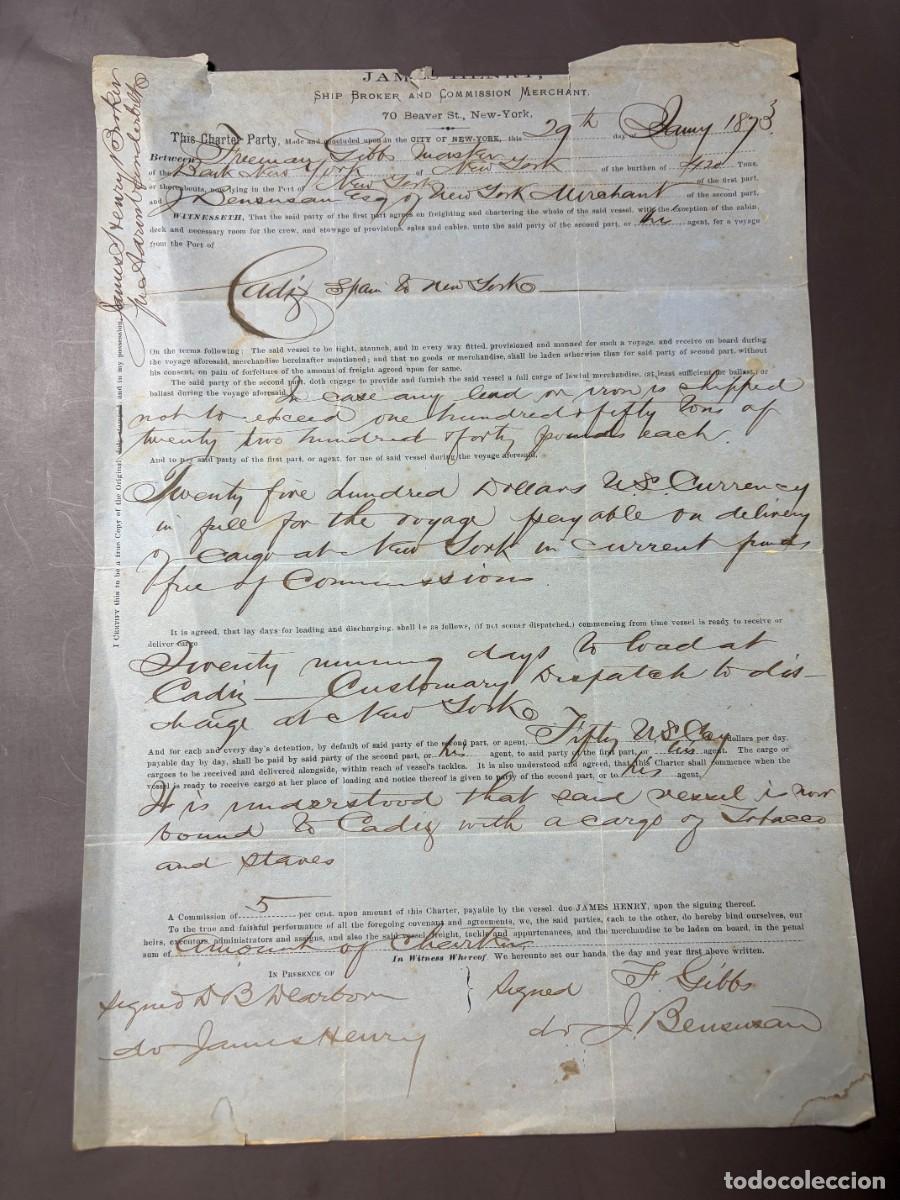 JAMES HENRY,
SHIP BROKER AND COMMISSION MERCHANT.
70 Beaver St., New-York.
This Charter Party, Made and concluded upon in the CITY OF NEW-YORK, this 29th day of Jany 1873
Between Freeman Gibbs Master
of the Bark New York of New York of the burthen of 420 Tons,
or thereabouts, now lying in the Port of New York of the first part,
and J Bensusan Esq of New York Merchant of the second part,
WITNESSETH, That the said party of the first part agrees on freighting and chartering the whole of the said vessel, with the exception of the cabin,
deck and necessary room for the crew, and stowage of provisions, sales and cables, unto the said party of the second part, or his agent, for a voyage
from the Port of
Cadiz Spain to New York
On the terms following: The said vessel to be tight, staunch, and in every way fitted, provisioned and manned for such a voyage, and receive on board during
the voyage aforesaid, merchandise hereinafter mentioned; and that no goods or merchandise, shall be laden otherwise than for said party of second part, without
his consent, on pain of forfeiture of the amount of freight agreed upon for same.
The said party of the second part, doth engage to provide and furnish the said vessel a full cargo of lawful merchandise, (at least sufficient for ballast,) or
ballast during the voyage aforesaid, In case any lead or iron is shipped
not to exceed one hundred & fifty tons of
twenty two hundred & forty pounds each.
And to pay said party of the first part, or agent, for use of said vessel during the voyage aforesaid,
Twenty five hundred Dollars U.S. Currency
in full for the voyage payable on delivery
of cargo at New York in current funds
free of Commissions
It is agreed, that lay days for loading and discharging, shall be as follows, (if not sooner dispatched,) commencing from time vessel is ready to receive or
deliver cargo
Twenty running days to load at
Cadiz — Customary Dispatch to dis-
charge at New York
And for each and every day's detention, by default of said party of the second part, or agent, Fifty U.S. Cy dollars per day,
payable day by day, shall be paid by said party of the second part, or his agent, to said party of the first part, or his agent. The cargo or
cargoes to be received and delivered alongside, within reach of vessel's tackles. It is also understood and agreed, that this Charter shall commence when the
vessel is ready to receive cargo at her place of loading and notice thereof is given to party of the second part, or to his agent,
It is understood that said vessel is now
bound to Cadiz with a cargo of Tobacco
and staves
A Commission of 5 per cent. upon amount of this Charter, payable by the vessel due JAMES HENRY, upon the signing thereof.
To the true and faithful performance of all the foregoing covenant and agreements, we, the said parties, each to the other, do hereby bind ourselves, our
heirs, executors, administrators and assigns, and also the said vessel freight, tackle and appurtenances, and the merchandise to be laden on board, in the penal
sum of amount of Charter In Witness Whereof, We hereunto set our hands, the day and year first above written.
IN PRESENCE OF
Signed D B Dearborn
do James Henry
Signed F. Gibbs
do J. Bensusan
I CERTIFY this to be a true Copy of the Original, duly stamped and in my possession
James Henry Broker
Aaron Vanderbilt
todocoleccion